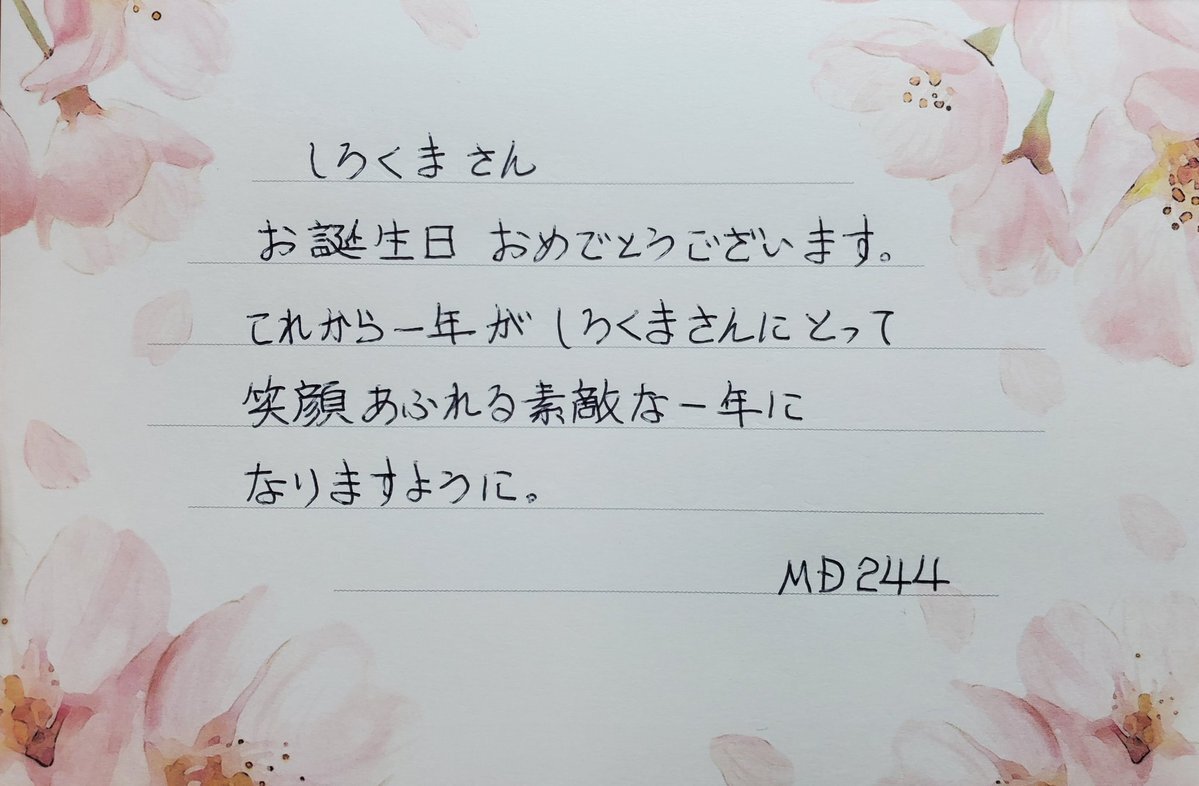 しろくまさん
お誕生日 おめでとうございます。
これから一年が しろくまさんにとって
笑顔あふれる素敵な一年に
なりますように。
MD244